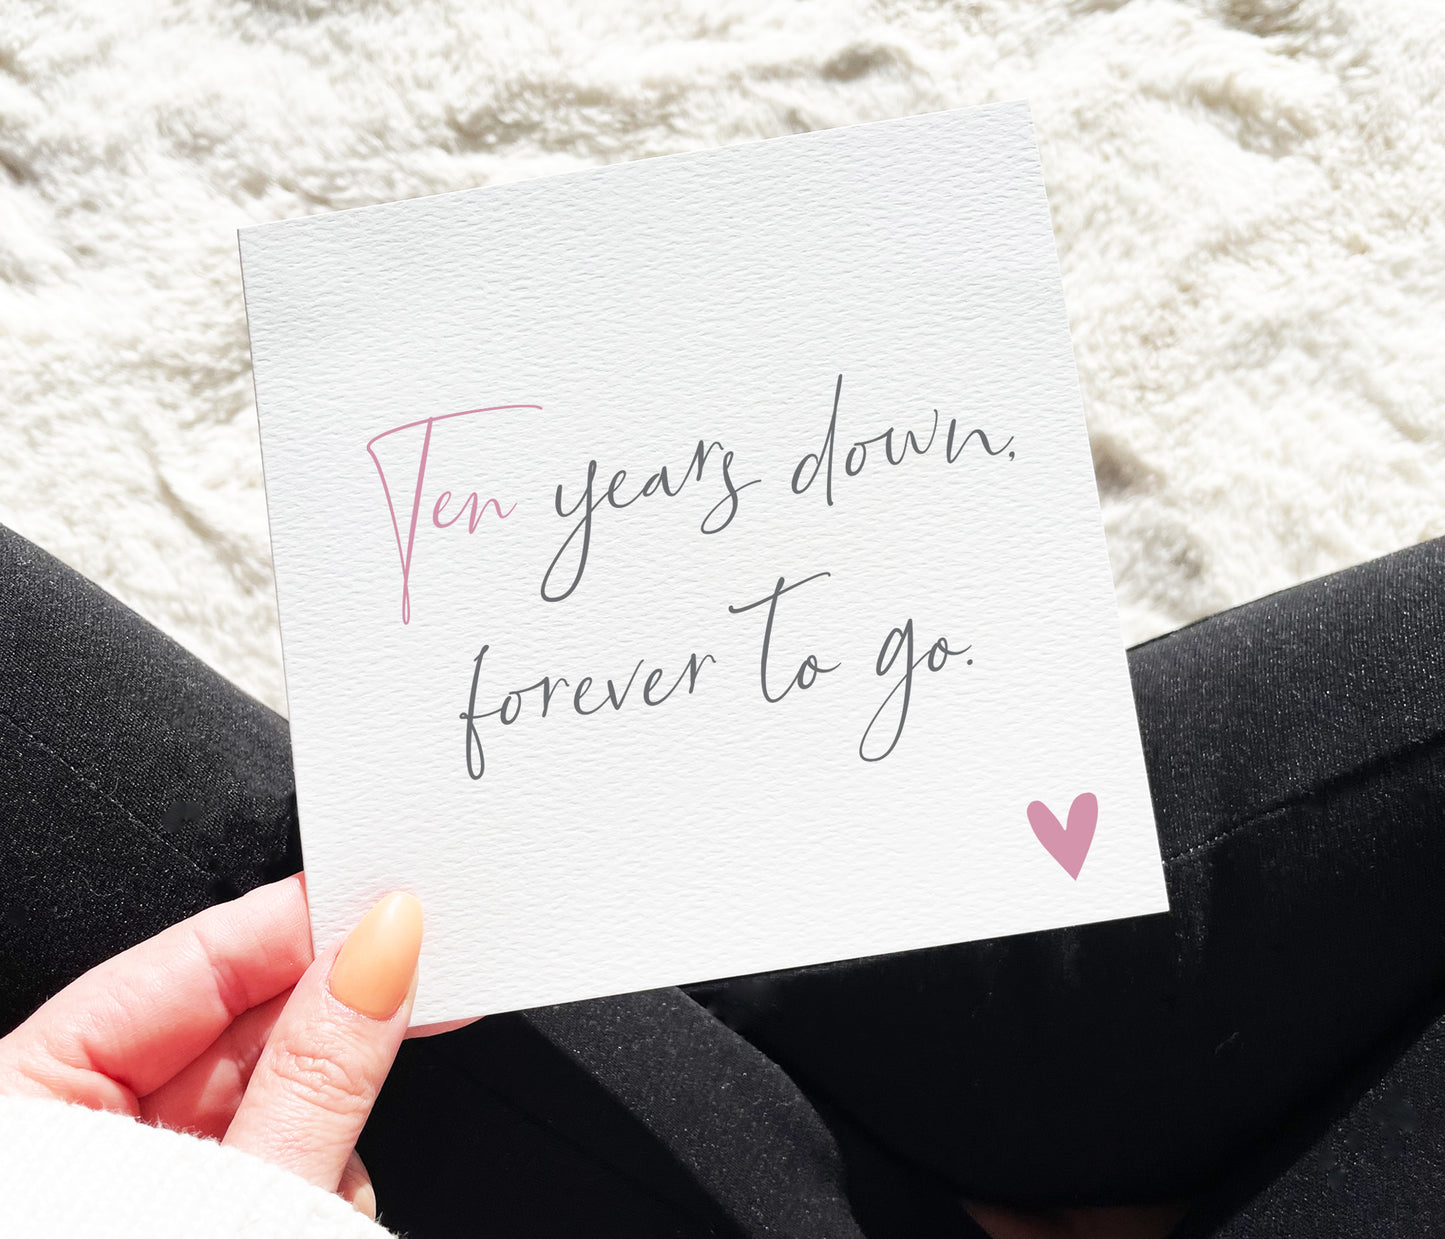 Ten years down,
forever to go.